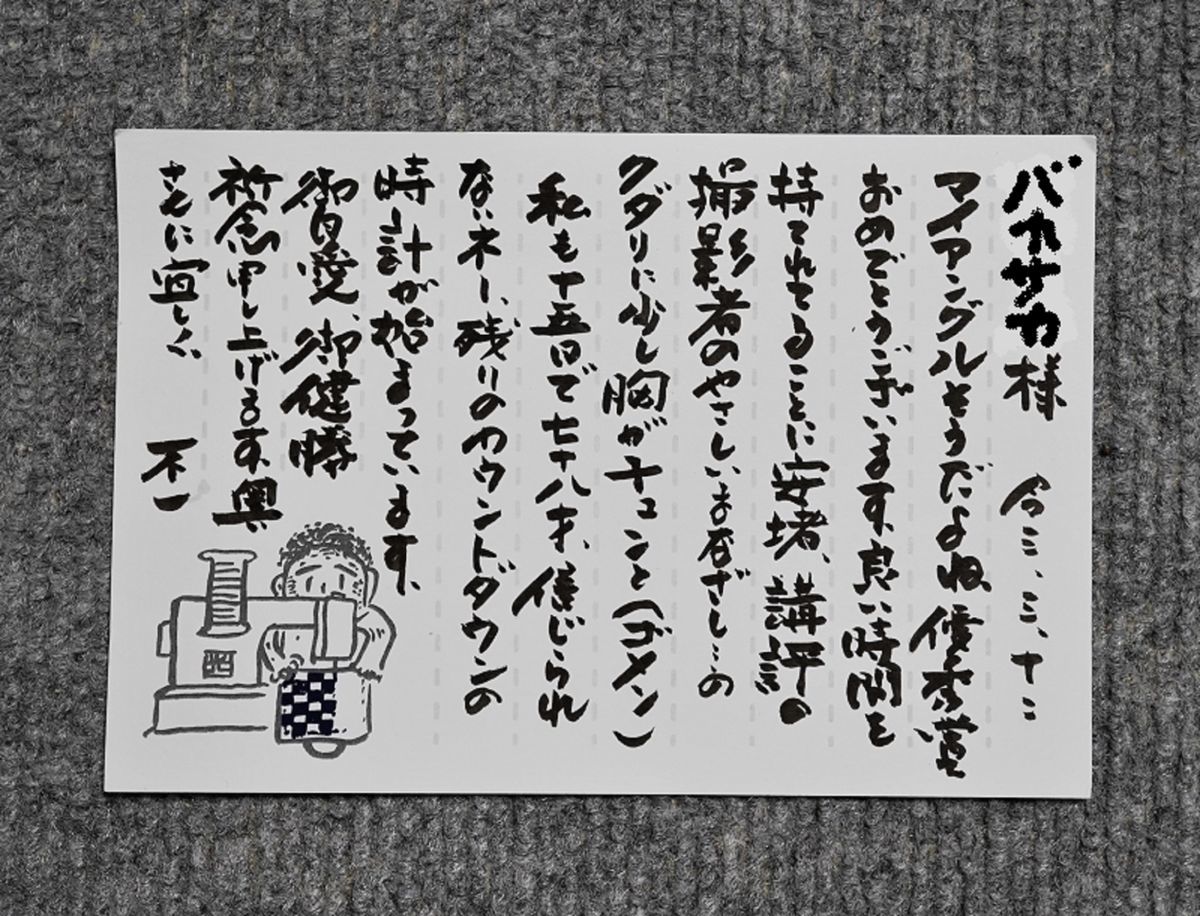 バカサカ様 令三、三、十二
マイアングルそうだよね、優秀賞
おめでとうございます、良い時間を
持てれてることに安堵、講評の
撮影者のやさしいまなざし…の
クダリに少し胸がチュンと(ゴメン)
私も十五日で七十八才、信じられ
ないネー、残りのカウントダウンの
時計が始まっています、
御自愛、御健勝
祈念申し上げます、奥
さんに宜しく、 不一
西